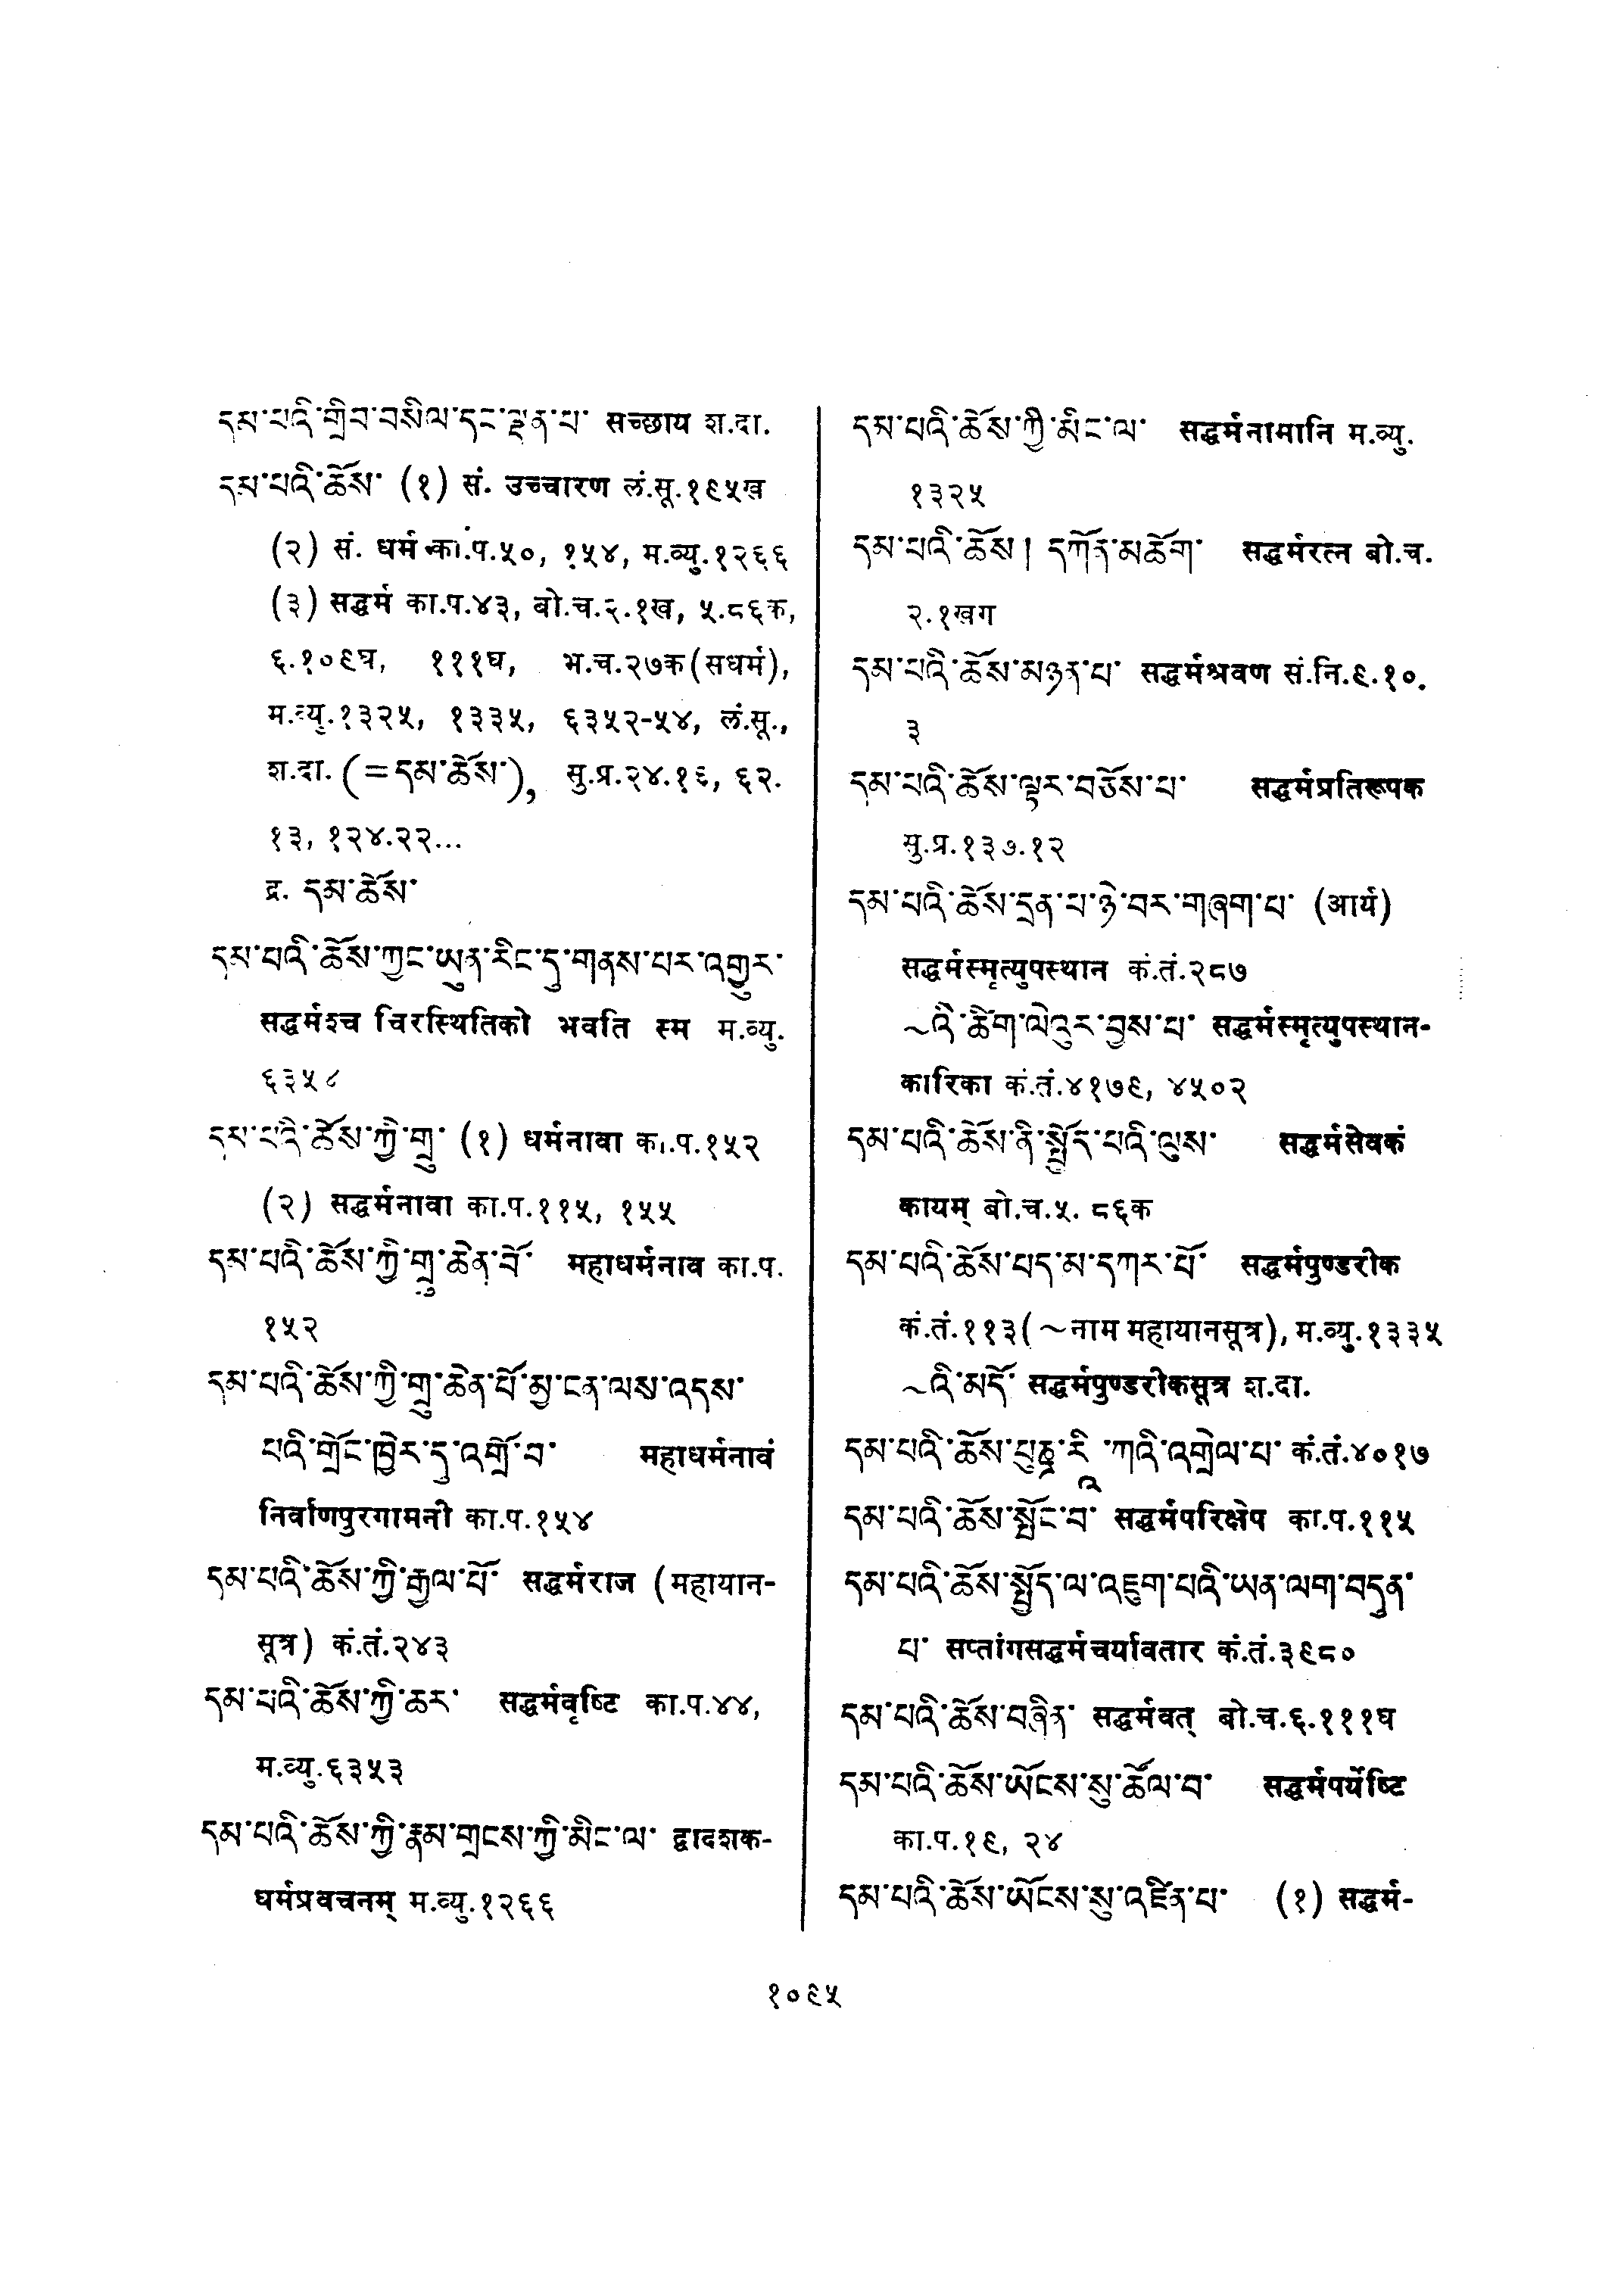 དམ་པའི་གྲིབ་བསིལ་དང་ལྡན་པ་ सच्छाय श.दा.
དམ་པའི་ཆོས་ (१) सं. उच्चारण लं.सू.१९५ख
(२) सं. धर्म का.प.५०, १५४, म.व्यु.१२६६
(३) सद्धर्म का.प.४३, बो.च.२.१ख, ५.८६क,
६.१०९घ, १११घ, भ.च.२७क(सधर्म),
म.व्यु.१३२५, १३३५, ६३५२-५४, लं.सू.,
श.दा. (=དམ་ཆོས་), सु.प्र.२४.१६, ६२.
१३, १२४.२२...
द्र. དམ་ཆོས་
དམ་པའི་ཆོས་ཀྱང་ཡུན་རིང་དུ་གནས་པར་འགྱུར་
सद्धर्मश्च चिरस्थितिको भवति स्म म.व्यु.
६३५८
དམ་པའི་ཆོས་ཀྱི་གྲུ་ (१) धर्मनावा का.प.१५२
(२) सद्धर्मनावा का.प.११५, १५५
དམ་པའི་ཆོས་ཀྱི་གྲུ་ཆེན་པོ་ महाधर्मनाव का.प.
१५२
དམ་པའི་ཆོས་ཀྱི་གྲུ་ཆེན་པོ་མྱ་ངན་ལས་འདས་
པའི་གྲོང་ཁྱེར་དུ་འགྲོ་བ་ महाधर्मनावं
निर्वाणपुरगामनी का.प.१५४
དམ་པའི་ཆོས་ཀྱི་རྒྱལ་པོ་ सद्धर्मराज (महायान-
सूत्र) कं.तं.२४३
དམ་པའི་ཆོས་ཀྱི་ཆར་ सद्धर्मवृष्टि का.प.४४,
म.व्यु.६३५३
དམ་པའི་ཆོས་ཀྱི་རྣམ་གྲངས་ཀྱི་མིང་ལ་ द्वादशक-
धर्मप्रवचनम् म.व्यु.१२६६
དམ་པའི་ཆོས་ཀྱི་མིང་ལ་ सद्धर्मनामानि म.व्यु.
१३२५
དམ་པའི་ཆོས། དཀོན་མཆོག་ सद्धर्मरत्न बो.च.
२.१खग
དམ་པའི་ཆོས་མཉན་པ་ सद्धर्मश्रवण सं.नि.९.१०.
३
དམ་པའི་ཆོས་ལྟར་བཅོས་པ་ सद्धर्मप्रतिरूपक
सु.प्र.१३७.१२
དམ་པའི་ཆོས་དྲན་པ་ཉེ་བར་གཞག་པ་ (आर्य)
सद्धर्मस्मृत्युपस्थान कं.तं.२८७
~འི་ཚིག་ལེའུར་བྱས་པ་ सद्धर्मस्मृत्युपस्थान-
कारिका कं.तं.४१७९, ४५०२
དམ་པའི་ཆོས་ནི་སྤྱོད་པའི་ལུས་ सद्धर्मसेवकं
कायम् बो.च.५. ८६क
དམ་པའི་ཆོས་པད་མ་དཀར་པོ་ सद्धर्मपुण्डरीक
कं.तं.११३(~नाम महायानसूत्र), म.व्यु.१३३५
~འི་མདོ་ सद्धर्मपुण्डरीकसूत्र श.दा.
དམ་པའི་ཆོས་པུཎྜ་རཱི་ཀའི་འགྲེལ་པ་ कं.तं.४०१७
དམ་པའི་ཆོས་སྤོང་བ་ सद्धर्मपरिक्षेप का.प.११५
དམ་པའི་ཆོས་སྤྱོད་ལ་འཇུག་པའི་ཡན་ལག་བདུན་
པ་ सप्तांगसद्धर्मचर्यावतार कं.तं.३९८०
དམ་པའི་ཆོས་བཞིན་ सद्धर्मवत् बो.च.६.१११घ
དམ་པའི་ཆོས་ཡོངས་སུ་ཚོལ་བ་ सद्धर्मपर्येष्टि
का.प.१९, २४
དམ་པའི་ཆོས་ཡོངས་སུ་འཛིན་པ་ (१) सद्धर्म-
१०९५